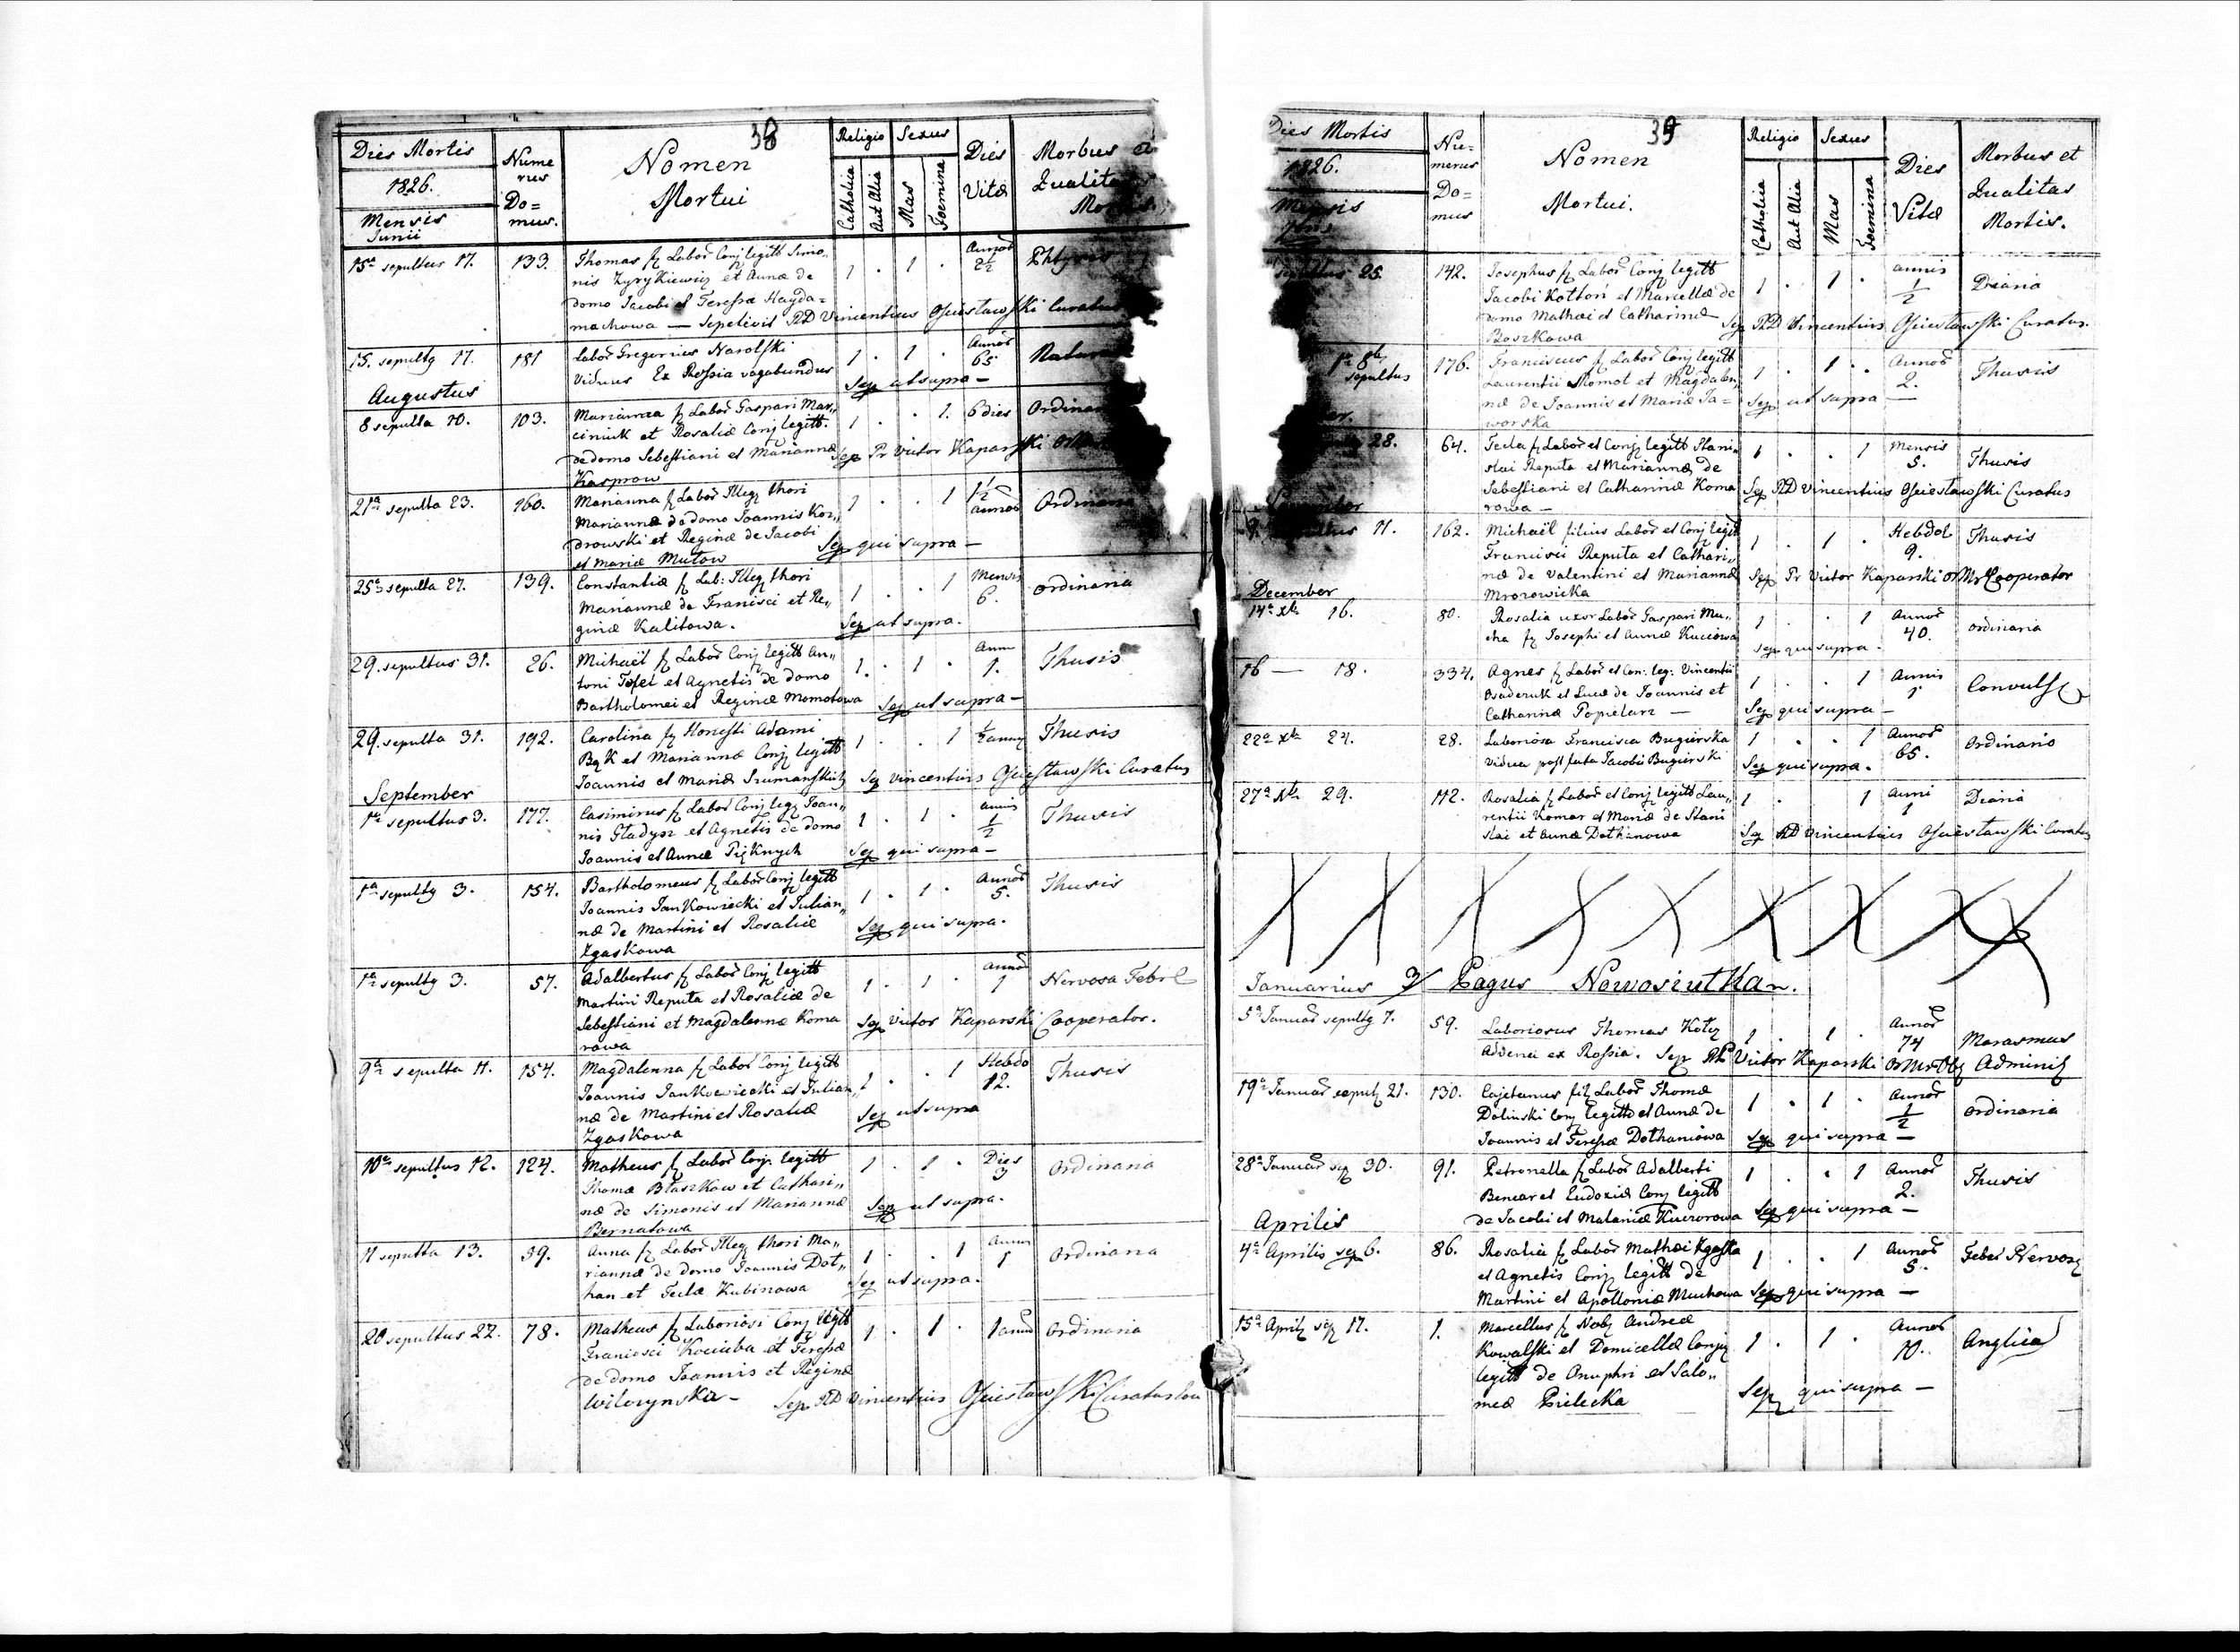 38
Dies Mortis
1826.
Mensis
Junii
Nume
rus
Do=
mus.
Nomen
Mortui
Religio
Catholica
Aut Alia
Sexus
Mas
Foemina
Dies
Vitæ
Morbus
Qualitas
15a sepultus 17. 133. Thomas f. Labor Conj legitt Simo,,
nis Zyrykiewicz et Annæ de 1 . 1 . Annor 2½
domo Jacobi et Teressæ Hayda=
machowa — Sepelivit RD Vincentius Osieslawski Curatus
15. sepultq 17. 181 Labor Gregorius Narolski 1 . 1 . Annor 65
Viduus Ex Rossia vagabundus Sep ut supra —
Augustus
8 sepulta 10. 103. Marianna f Labor Gaspari Mar,, 1 . . 1. 6 dies
ciniuk et Rosaliæ Conj legitt.
de domo Sebestiani et Mariannæ Sep Pr Victor Kaparski
Kasprow
21a sepulta 23. 160. Marianna f Labor Illeg thori 1 . . 1 1½ annor Ordinaria
Mariannæ de domo Joannis Kor,,
drowski et Reginæ de Jacobi Sep qui supra —
et Mariæ Mutow
25a sepulta 27. 139. Constantia f Lab: Illeg thori 1 . . 1 Mensis 6. ordinaria
Mariannæ de Francisci et Re,,
ginæ Kalitowa. Sep ut supra.
29. sepultus 31. 26. Michaël f Labor Conj legitt An,, 1. . 1 . Ann 1. Thusis
toni et Agnetis de domo
Bartholomei et Reginæ Momotowa Sep ut supra —
29. sepulta 31. 192. Carolina f Honesti Adami 1 . . 1 ½ anny Thusis
Bąk et Mariannæ Conj legitt
Joannis et Mariæ Szumanskich Sep Vincentius Osieslawski Curatus
September
1a sepultus 3. 177. Casimirus f Labor Conj leg Joan,, 1 . 1 . annis ½ Thusis
nis Gladysz et Agnetis de domo
Joannis et Annæ Pięknych Sep qui supra —
1a sepultq 3. 154. Bartholomeus f Labor Conj legitt 1 . 1 . Annor 5. Thusis
Joannis Jankowiecki et Julian,,
næ de Martini et Rosaliæ Sep qui supra.
Zgaskowa
1a sepultq 3. 57. Adalbertus f Labor Conj legitt 1 . 1 . Annor 1 Nervosa Febr
Martini Reputa et Rosaliæ de
Sebestiani et Magdalennæ Koma Sep Victor Kaparski Cooperator.
rowa
9a sepulta 11. 154. Magdalenna f Labor Conj legitt 1 . . 1 Hebdo 12. Thusis
Joannis Jankowiecki et Julian,,
næ de Martini et Rosaliæ Sep ut supra
Zgaskowa
10a sepultus 12. 124. Matheus f Labor Conj legitt 1 . 1 . Dies 3 Ordinaria
Thomæ Błaszkow et Cathari,,
næ de Simonis et Mariannæ Sep ut supra.
Bernatowa
11 sepulta 13. 39. Anna f Labor Illeg thori Ma,, 1 . . 1 Annus 1 Ordinaria
riannæ de domo Joannis Dot,,
han et Teclæ Kubinowa Sep ut supra.
20 sepultus 22. 78. Matheus f Laboriosi Conj legitt 1 . 1 . 1 annus Ordinaria
Francisci Kociuba et Teressæ
de domo Joannis et Reginæ
Wilczynska — Sep RD Vincentius Osieslawski Curatus
39
Dies Mortis
1826.
Nu=
merus
Do=
mus
Nomen
Mortui.
Religio
Catholica
Aut Alia
Sexus
Mas
Foemina
Dies
Vitæ
Morbus et
Qualitas
Mortis.
25. 142. Josephus f Labor Conj legitt 1 . 1 . annis ½ Diaria
Jacobi Kotton et Marcellæ de
domo Mathæi et Catharinæ Sep RD Vincentius Osieslawski Curatus.
Boszkowa
sepultus 176. Franciscus f Labor Conj legitt 1 . 1 . Annor 2. Thusis
Laurentii Momot et Magdalen,,
næ de Joannis et Mariæ Ja= Sep ut supra —
worska
28. 64. Tecla f Labor et Conj legitt Stani= 1 . . 1 Mensis 5. Thusis
slai Reputa et Mariannæ de
Sebestiani et Catharinæ Koma Sep RD Vincentius Osieslawski Curatus
rowa —
11. 162. Michaël filius Labor et Conj legitt 1 . 1 . Hebdo 9. Thusis
Francisci Reputa et Cathari,,
næ de Valentini et Mariannæ Sep Pr Victor Kaparski Cooperator
Mrozowicka
December
14a Xbr 16. 80. Rosalia uxor Labor Gaspari Mu,, 1 . . 1 Annor 40. ordinaria
cha f Josephi et Annæ Kuciowa Sep qui supra.
16 — 18. 334. Agnes f Labor et Con: leg: Vincentii 1 . . 1 Annis 1
Osaderuk et Luciæ de Joannis et
Catharinæ Popielarz — Sep qui supra —
22a Xbr 24. 28. Laboriosa Francisca Bugierska 1 . . 1 Annor 65. Ordinario
Vidua post fata Jacobi Bugierski Sep qui supra.
27a Xbr 29. 112. Rosalia f Labor et Conj legitt Lau= 1 . 1 Anni 1 Diaria
rentii Komar et Mariæ de Stani
slai et Annæ Dothanowa Sep RD Vincentius Osieslawski Curatus
Januarius 3/ Pagus Nowosiutkan.
5a Januar sepultq 7. 59. Laboriosus Thomas Kotez 1 . 1 . Annor 74 Marasmus
Advena ex Rossia. Sep Victor Kaparski
19a Januar sepult 21. 130. Cajetanus fil Labor Thomæ 1 . 1 . Annor ½ ordinaria
Dolinski Conj legitt et Annæ de
Joannis et Teressæ Dothaniowa Sep qui supra —
28a Januar sep 30. 91. Petronella f Labor Adalberti 1 . . 1 Annor 2. Thusis
Benear et Eudoxiæ Conj legitt
de Jacobi et Malaniæ Kucrorowa Sep qui supra —
Aprilis
4a Aprilis sep 6. 86. Rosalia f Labor Mathæi 1 . . 1 Annor 5. Feber Nervos
et Agnetis Conj legitt de
Martini et Apolloniæ Muchowa Sep qui supra —
15a April sep 17. 1. Marcellus f Nob Andreæ 1 . 1 . Annor 10. Anglica
Kowalski et Domicellæ Conj
legitt de Onuphri et Salo,,
meæ Pielecka Sep qui supra —